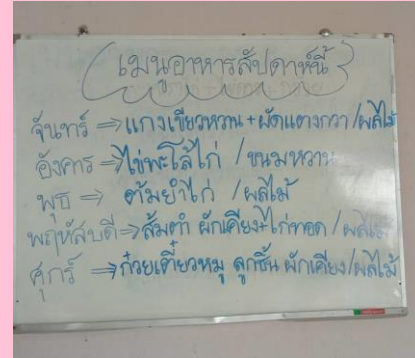 เมนูอาหารสัปดาห์นี้
จันทร์ => แกงเขียวหวาน + ผัดแตงกวา / ผลไม้
อังคาร => ไข่พะโล้ไก่ / ขนมหวาน
พุธ => ต้มยำไก่ / ผลไม้
พฤหัสบดี => ส้มตำ ผักเคียง+ไก่ทอด / ผลไม้
ศุกร์ => ก๋วยเตี๋ยวหมู ลูกชิ้น ผักเคียง/ผลไม้